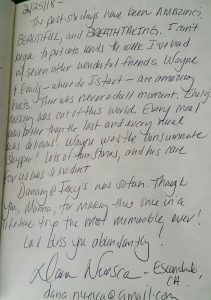 2/25/18 -
The past six days have been AMAZING,
BEAUTIFUL, and BREATHTAKING. I can't
begin to put into words the week I've had
w/ seven other wonderful friends. Wayne
& Emily - where do I start - are amazing
hosts. There was never a dull moment. Emily's
cooking was out of this world. Every meal
was better than the last and every meal
was delicious! Wayne was the consummate
skipper! Lots of fun stories, and his care
for us was evident.
Dancing @ Foxy's was so fun. Thank
you, for making this once in a
lifetime trip the most memorable, ever!
God bless you abundantly!
Dana - Escondido,
CA